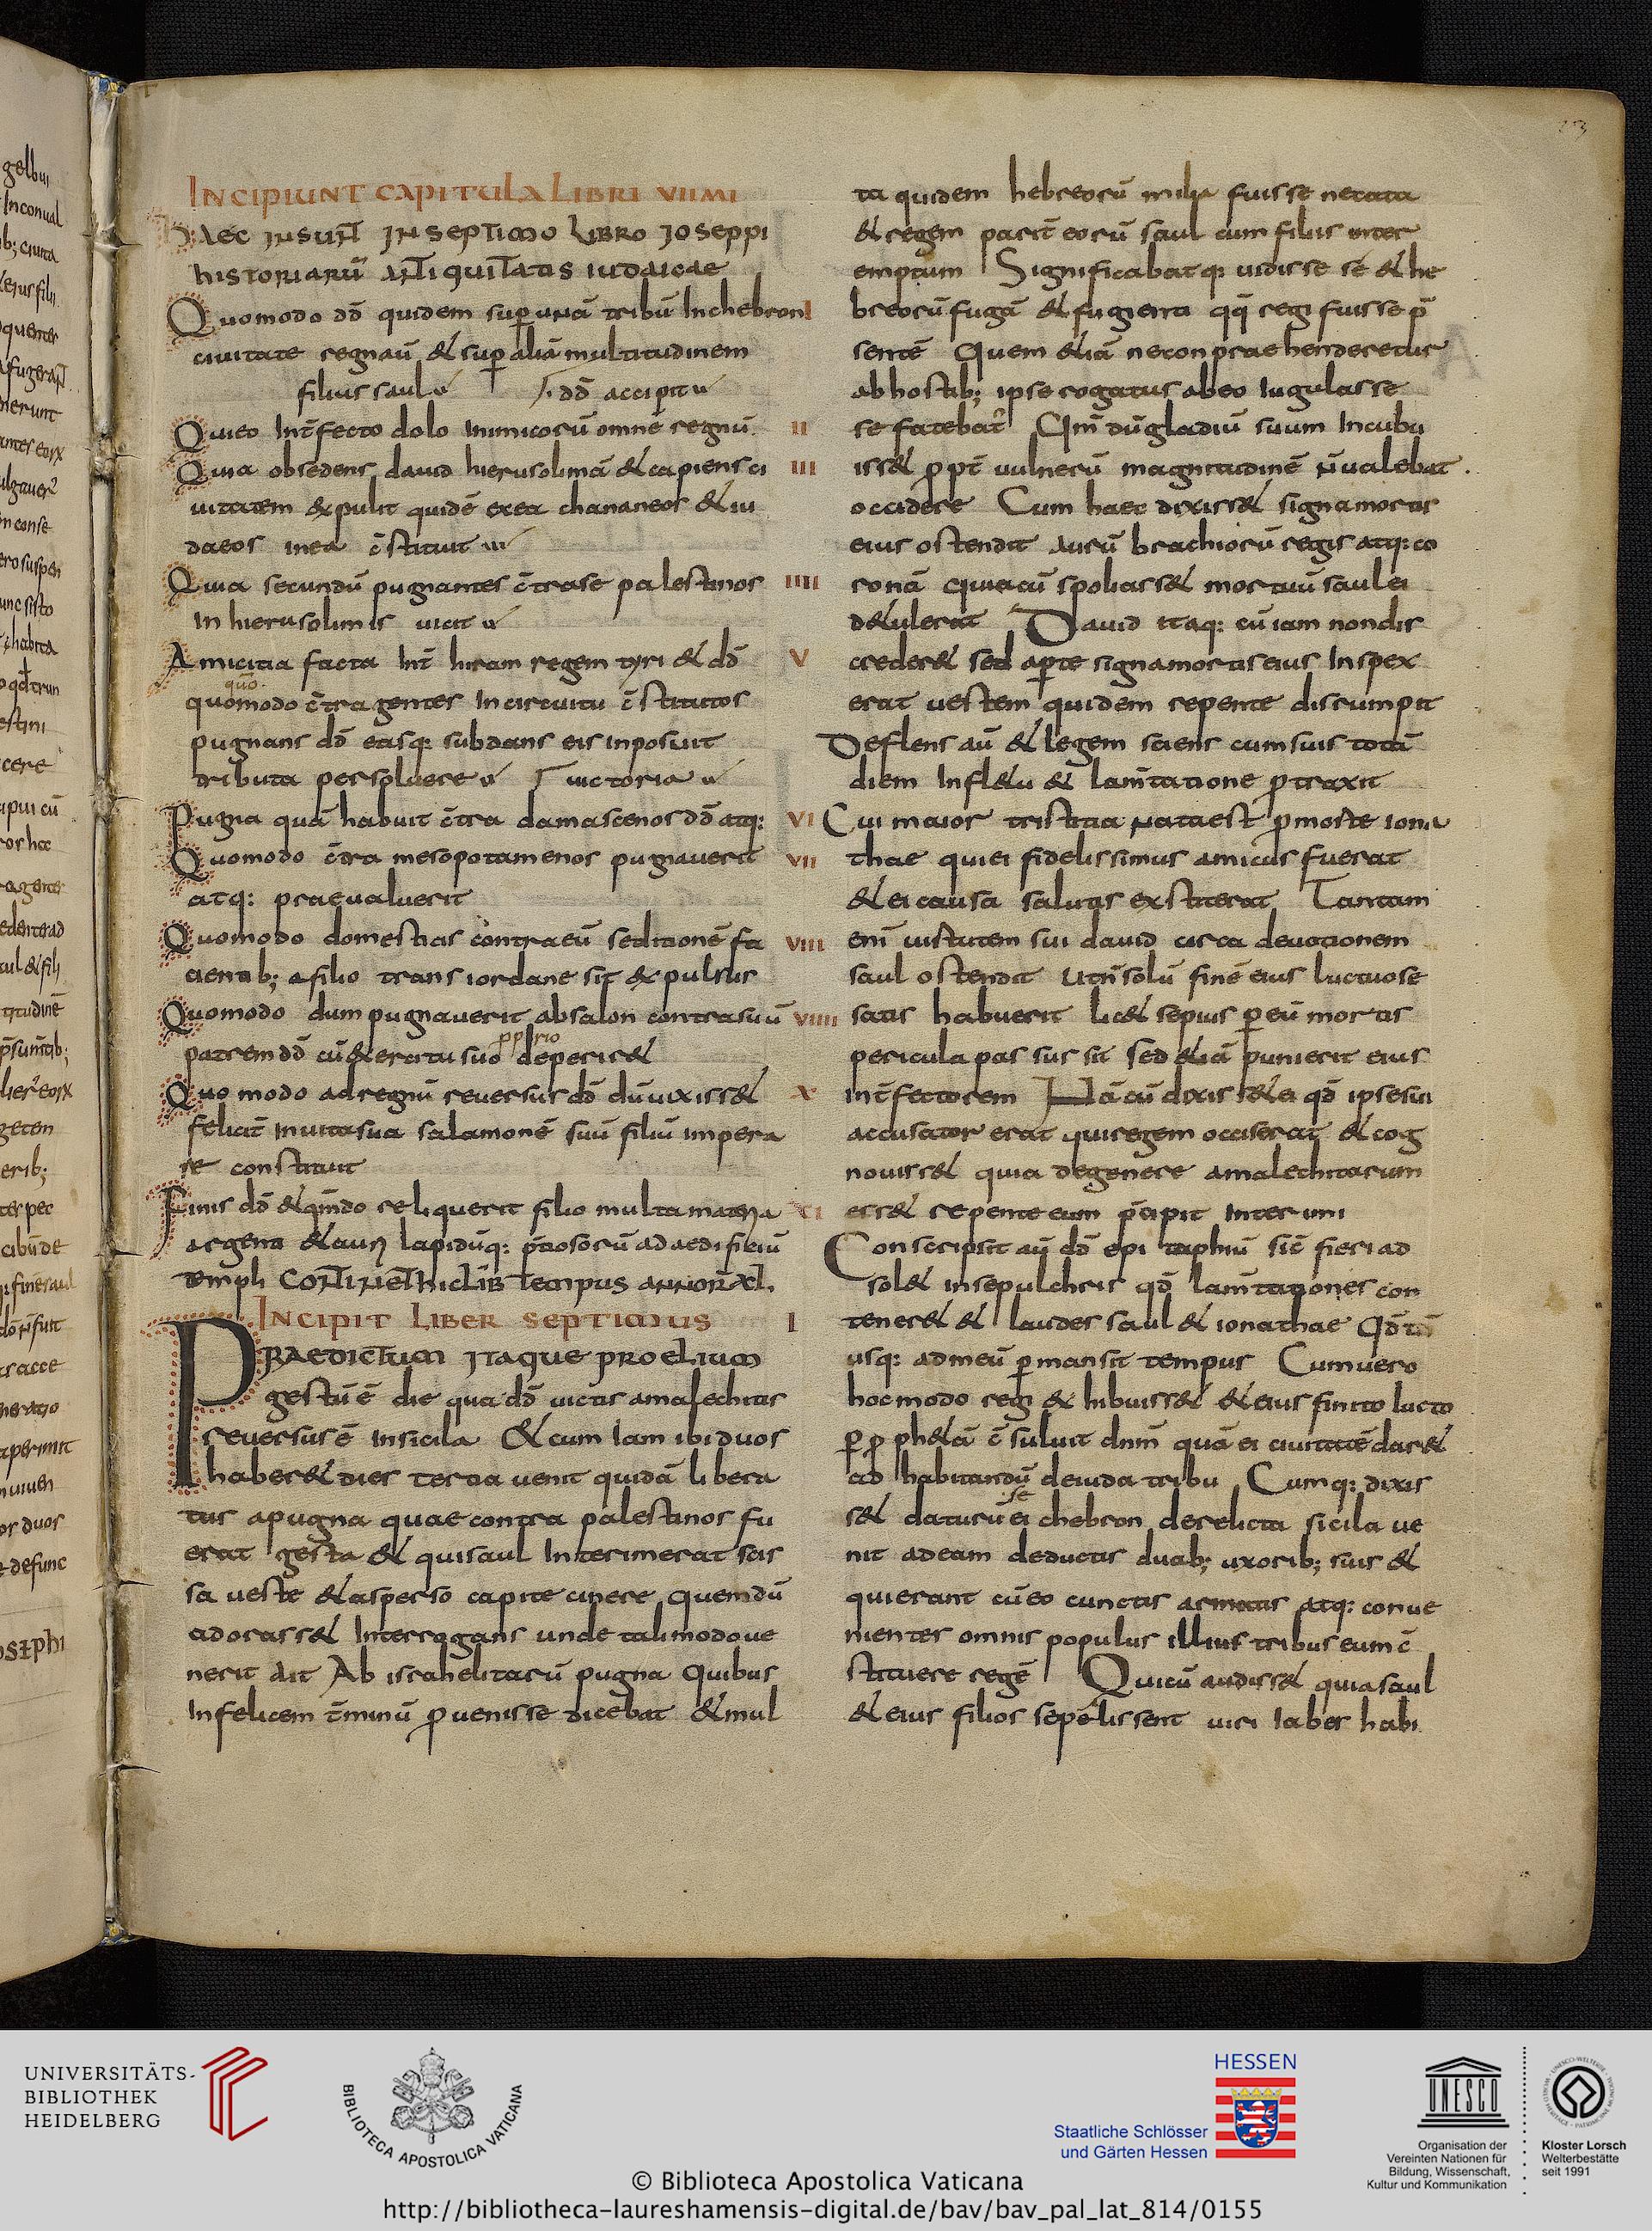 INCIPIUNT CAPITULA LIBRI VIIMI
HAEC INSUNT IN SEPTIMO LIBRO IOSEPPI
HISTORIARŪ ANTIQUITATIS IUDAICAE
Quomodo dd̄ quidem sup unā tribū Inchebron I
ciuitate regnaū & sup aliā multitudinem
filius saul dd̄ accipit
Quieo Int̄fecto dolo Inimicorū omnē regnū II
Quia obsedens dauid hierusolimā & capiens ci III
uitatem expulit quidē exea chananeos & iu
daeos inea c̄stituit
Quia secundū pugnantes c̄trase palestinos IIII
In hierusolimis uicit
Amicitia facta Int̄ hiram regem tyri & dd̄ V
quō
quomodo c̄tra gentes Incircuitu c̄stitutos
pugnans dd̄ easq: subdans eis inposuit
tributa persoluere uictoria
Pugna quā habuit c̄tra damascenos dd̄ atq: VI
Quomodo c̄tra mesopotamenos pugnauerit VII
atq: praeualuerit
Quomodo domesticis contraeū seditionē fa VIII
cientib; afilio trans iordane sit expulsus
Quomodo dum pugnauerit absalon contrasuū VIIII
pprio
patrem dd̄ cū exercitu suo deperiss&
Quomodo adregnū reuersus dd̄ dū uixiss& X
feliciт̄ Inuitasua salamonē suū filiū impera
re constituit
Finis dd̄ & qn̄do reliquerit filio multa materia XI
argenti & auri lapidūq: p̄ciosorū ad aedificiū
templi CONTINET hic LIB̄ tempus ANNOR̄ XL.
INCIPIT LIBER SEPTIMUS I
PRAEDICTUM ITAQUE PROELIUM
gestū ē die qua dd̄ uictis amalechitis
reuersus ē Insicila &cum Iam ibi duos
haber& dies tertia uenit quidā libera
tus apugna quae contra palestinos fu
erat gesta & quisaul Interimerat scis
sa ueste & asperso capite cinere quemdū
adorass& Interrogans unde talimodo ue
nerit Ait Ab israhelitarū pugna Quibus
Infelicem t̄minū puenisse dicebat &mul
ta quidem hebreorū milia fuisse necata
& regem parit̄ eorū saul cum filiis inter
emptum Significabatq: uidisse se & he
breorū fugā & fugienti qq̄ regi fuisse p̄
sentē Quem &iā necon praehenderetur
abhostib; ipse rogatus abeo Iugulasse
se fatebat̄ Qm̄ dū gladiū suum Incubu
iss& ppt̄ uulnerū magnitudinē n̄ualebat.
occidere Cum haec dixiss& signa mortis
eius ostendit aurū brachiorū regis atq: co
ronā quiacū spoliass& mortuū saul ei
d&ulerat Dauid itaq: cū iam non dis
creder& sed apte signa mortis eius Inspex
erat uestem quidem repente disrumpit
Deflens aū & legem sciens cum suis totā
diem Infl&u & lam̄tatione ptraxit
Cui maior tristitia nata est pmorte iona
thae quiei fidelissimus amicus fuerat
& ei causa salutis extiterat Tantam
enī uirtutem sui dauid circa deuotionem
saul ostendit Ut n̄ solū finē eius luctuose
satis habuerit lic& sepius p eū mortis
pericula passus sit sed &iā punierit eius
int̄fectorem Nā cū dixiss& ei qd̄ ipse sui
accusator erat qui regem occiserat & cog
nouiss& quia degenere amalechitarum
ess& repente eum p̄cipit Interimi
Conscripsit aū dd̄ epi taphiū sic̄ fieri ad
sol& insepulchris qd̄ lam̄tationes con
tener& & laudes saul & ionathae Qd̄
usq: admeū pmansit tempus Cumuero
hocmodo regi exhibuiss& & eius finito lucto
p ph&ā c̄suluit dn̄m quā ei ciuitatē dar&
ad habitandū deiuda tribu Cumq: dixis
se
s& daturū ei chebron derelicta sicila ue
nit adeam deductis duab; uxorib; suis &
quierant cū eo cunctis armatis atq: conue
nientes omnis populus illius tribus eum c̄
stituere regē Quicū audiss& quia saul
& eius filios sepelissent uiri Iabes habi
UNIVERSITÄTS-
BIBLIOTHEK
HEIDELBERG
BIBLIOTECA APOSTOLICA VATICANA
HESSEN
Staatliche Schlösser
und Gärten Hessen
UNESCO
Organisation der
Vereinten Nationen für
Bildung, Wissenschaft,
Kultur und Kommunikation
Kloster Lorsch
Welterbestätte
seit 1991
© Biblioteca Apostolica Vaticana
http://bibliotheca-laureshamensis-digital.de/bav/bav_pal_lat_814/0155